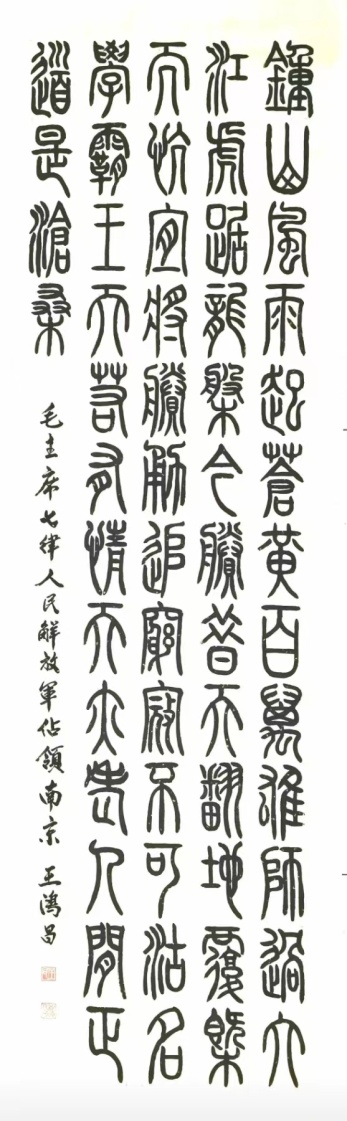 鐘山風雨起蒼黃百萬雄師過大
江虎踞龍盤今勝昔天翻地覆慨
而忼宜將賸勇追窮寇不可沽名
學霸王天若有情天亦老人間正
道是滄桑
毛主席七律人民解放軍佔領南京 王鴻昌